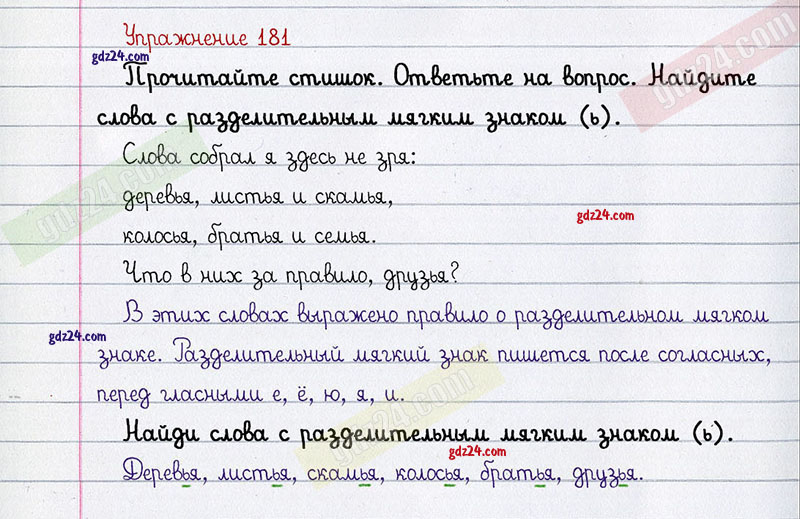 Упражнение 181
gdz24.com
Прочитайте стишок. Ответьте на вопрос. Найдите
слова с разделительным мягким знаком (ь).
Слова собрал я здесь не зря:
деревья, листья и скамья,
gdz24.com
колосья, братья и семья.
Что в них за правило, друзья?
В этих словах выражено правило о разделительном мягком
gdz24.com
знаке. Разделительный мягкий знак пишется после согласных,
перед гласными е, ё, ю, я, и.
Найди слова с разделительным мягким знаком (ь).
gdz24.com
Деревья, листья, скамья, колосья, братья, друзья.
gdz24.com
gdz24.com
gdz24.com